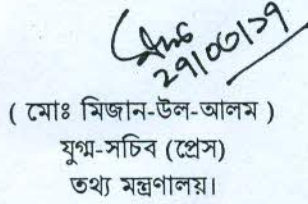 ( মোঃ মিজান-উল-আলম )
যুগ্ম-সচিব (প্রেস)
তথ্য মন্ত্রণালয়।